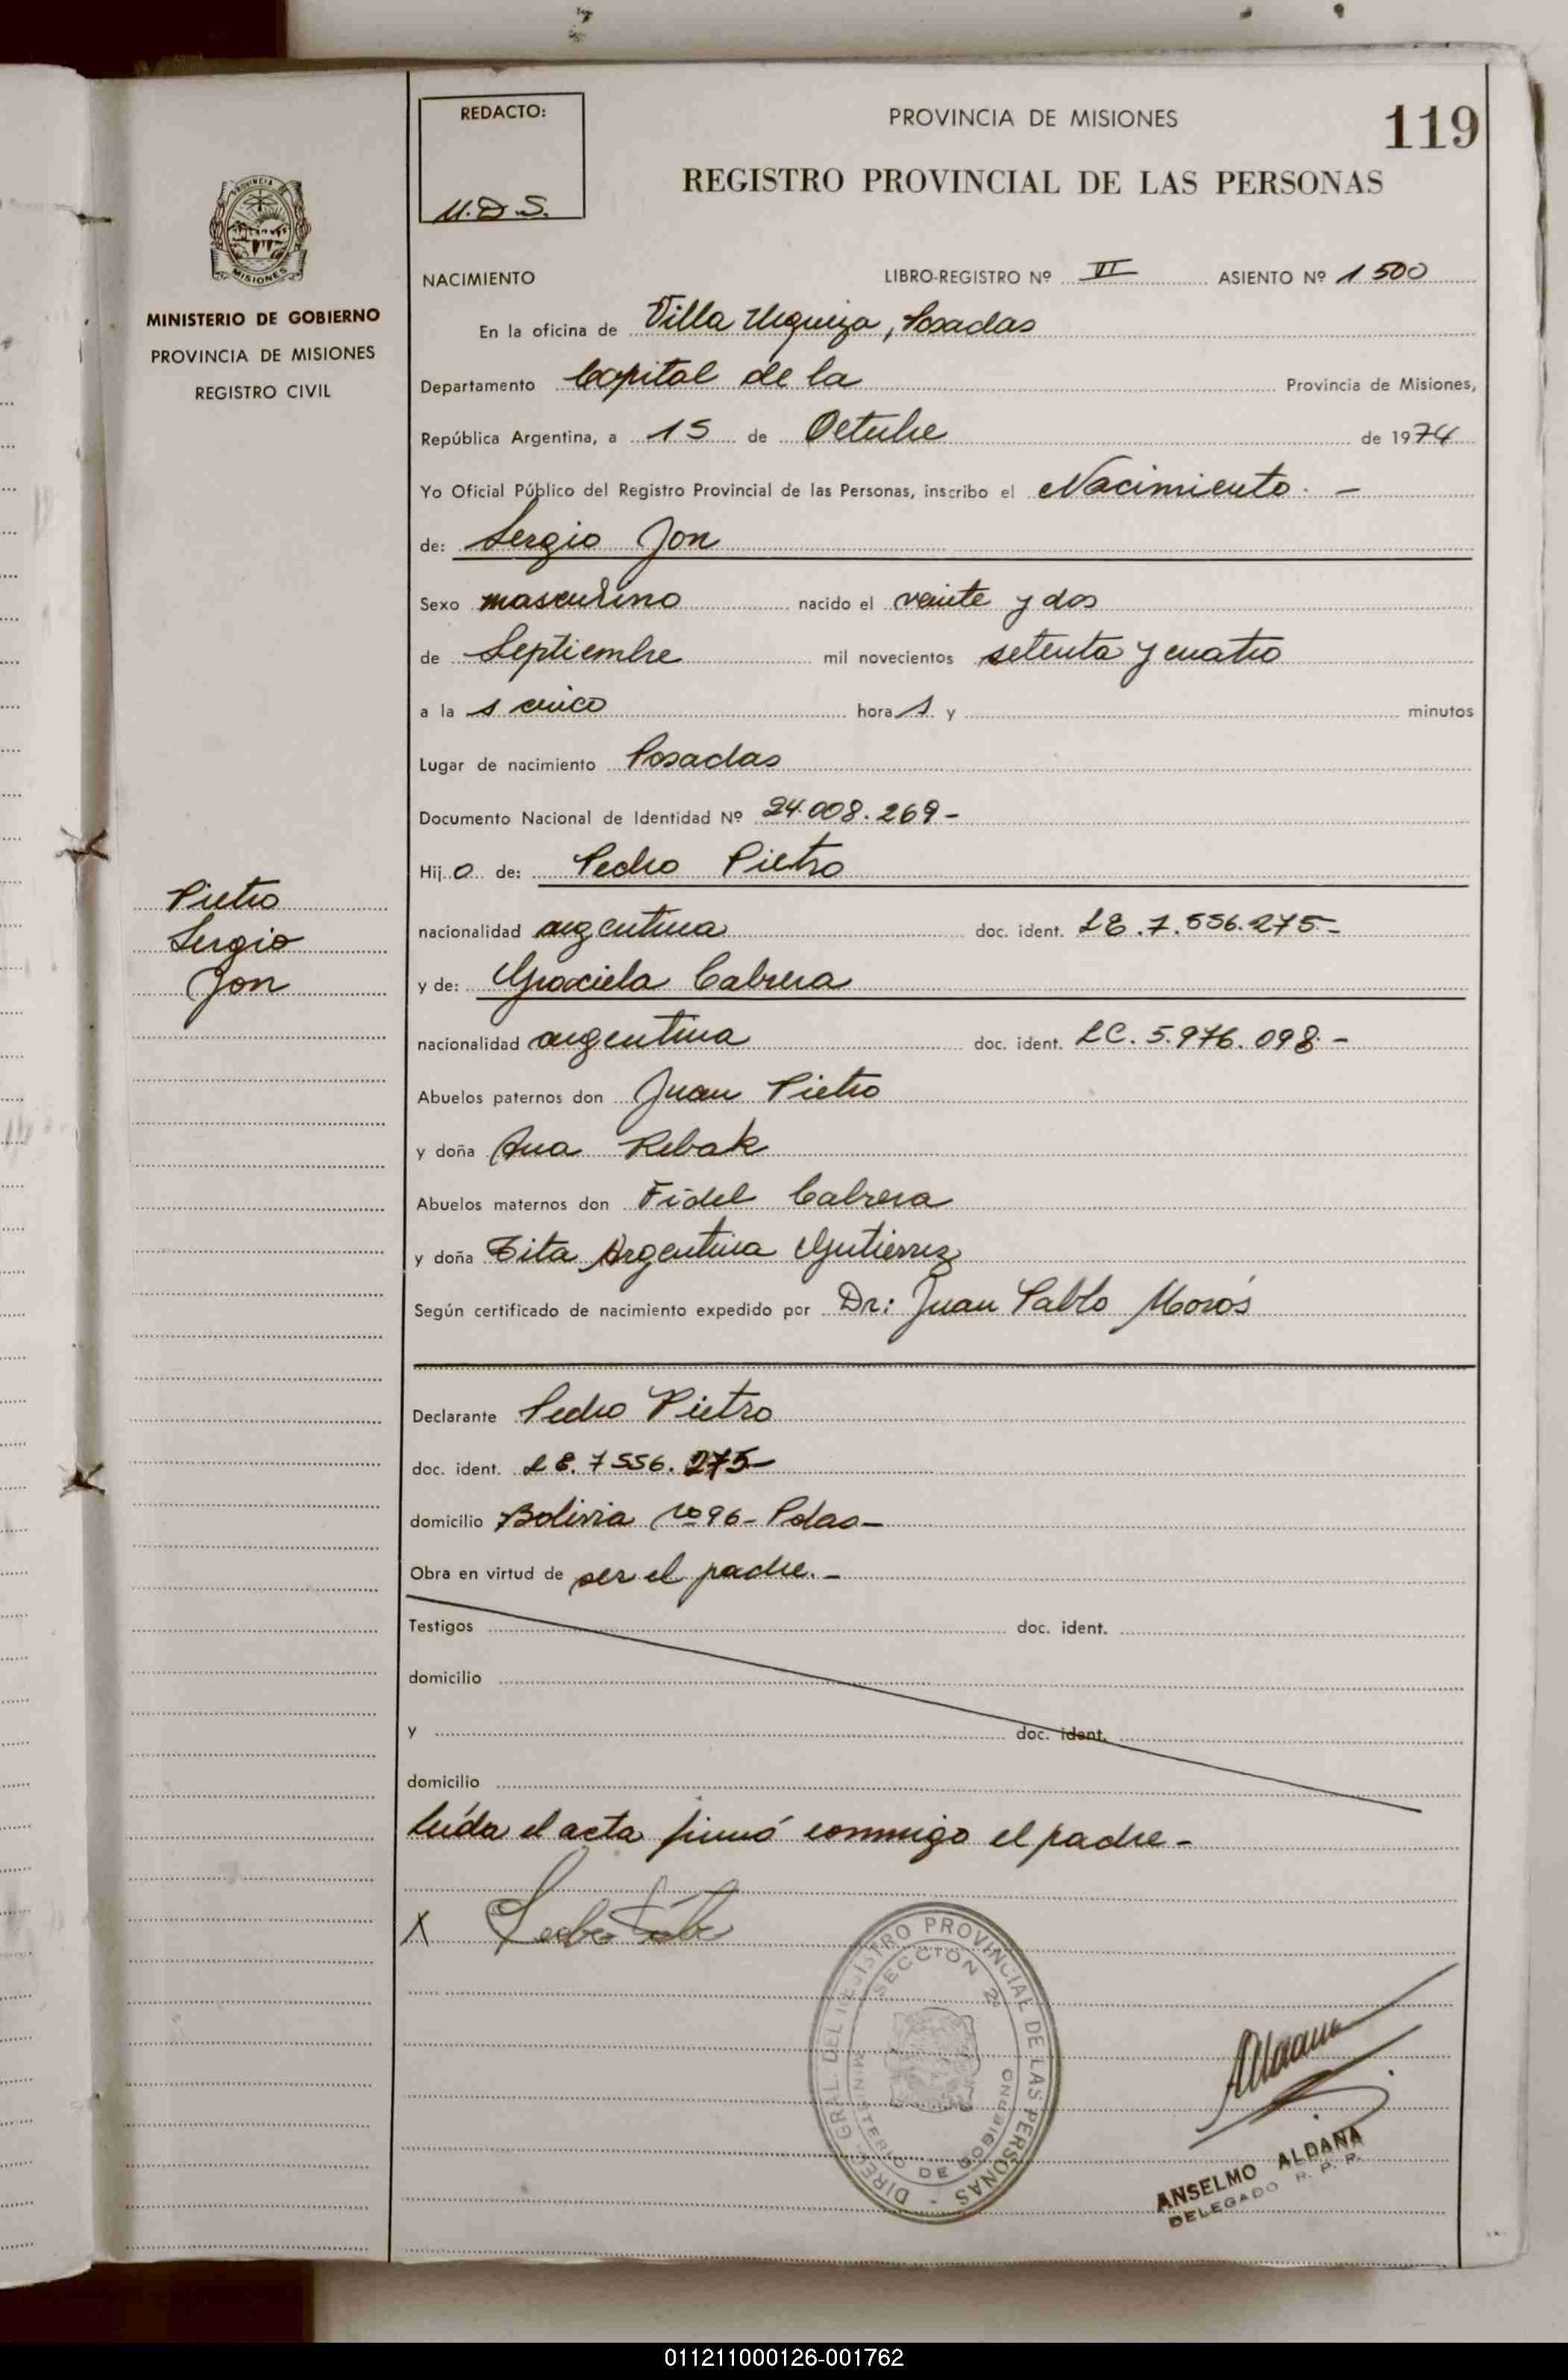 119
REDACTO:
M.D.S.
PROVINCIA DE MISIONES
REGISTRO PROVINCIAL DE LAS PERSONAS
PROVINCIA DE
MISIONES
MINISTERIO DE GOBIERNO
PROVINCIA DE MISIONES
REGISTRO CIVIL
NACIMIENTO LIBRO-REGISTRO Nº VI ASIENTO Nº 1500
En la oficina de Villa Urquiza, Posadas
Departamento Capital de la Provincia de Misiones,
República Argentina, a 15 de Octubre de 1974
Yo Oficial Público del Registro Provincial de las Personas, inscribo el Nacimiento. -
de: Sergio Jon
Sexo masculino nacido el veinte y dos
de Septiembre mil novecientos setenta y cuatro
a la s cinco hora s y minutos
Lugar de nacimiento Posadas
Documento Nacional de Identidad Nº 24.008.269-
Hij o de: Pedro Pietro
Pietro
Sergio
Jon
nacionalidad argentina doc. ident. LE.7.556.275-
y de: Graciela Cabrera
nacionalidad argentina doc. ident. LC. 5.976.098.-
Abuelos paternos don Juan Pietro
y doña Ana Rebak
Abuelos maternos don Fidel Cabrera
y doña Tita Argentina Gutierrez
Según certificado de nacimiento expedido por Dr: Juan Pablo Morós
Declarante Pedro Pietro
doc. ident. LE. 7556.275-
domicilio Bolivia Nº 96- Pdas-
Obra en virtud de ser el padre.-
Testigos doc. ident.
domicilio
y doc. ident.
domicilio
leída el acta firmó conmigo el padre-
X
DIREC. GRAL. DEL REGISTRO PROVINCIAL DE LAS PERSONAS -
SECCION 2ª
MINISTERIO DE GOBIERNO
ANSELMO ALDANA
DELEGADO R. P. P.
011211000126-001762